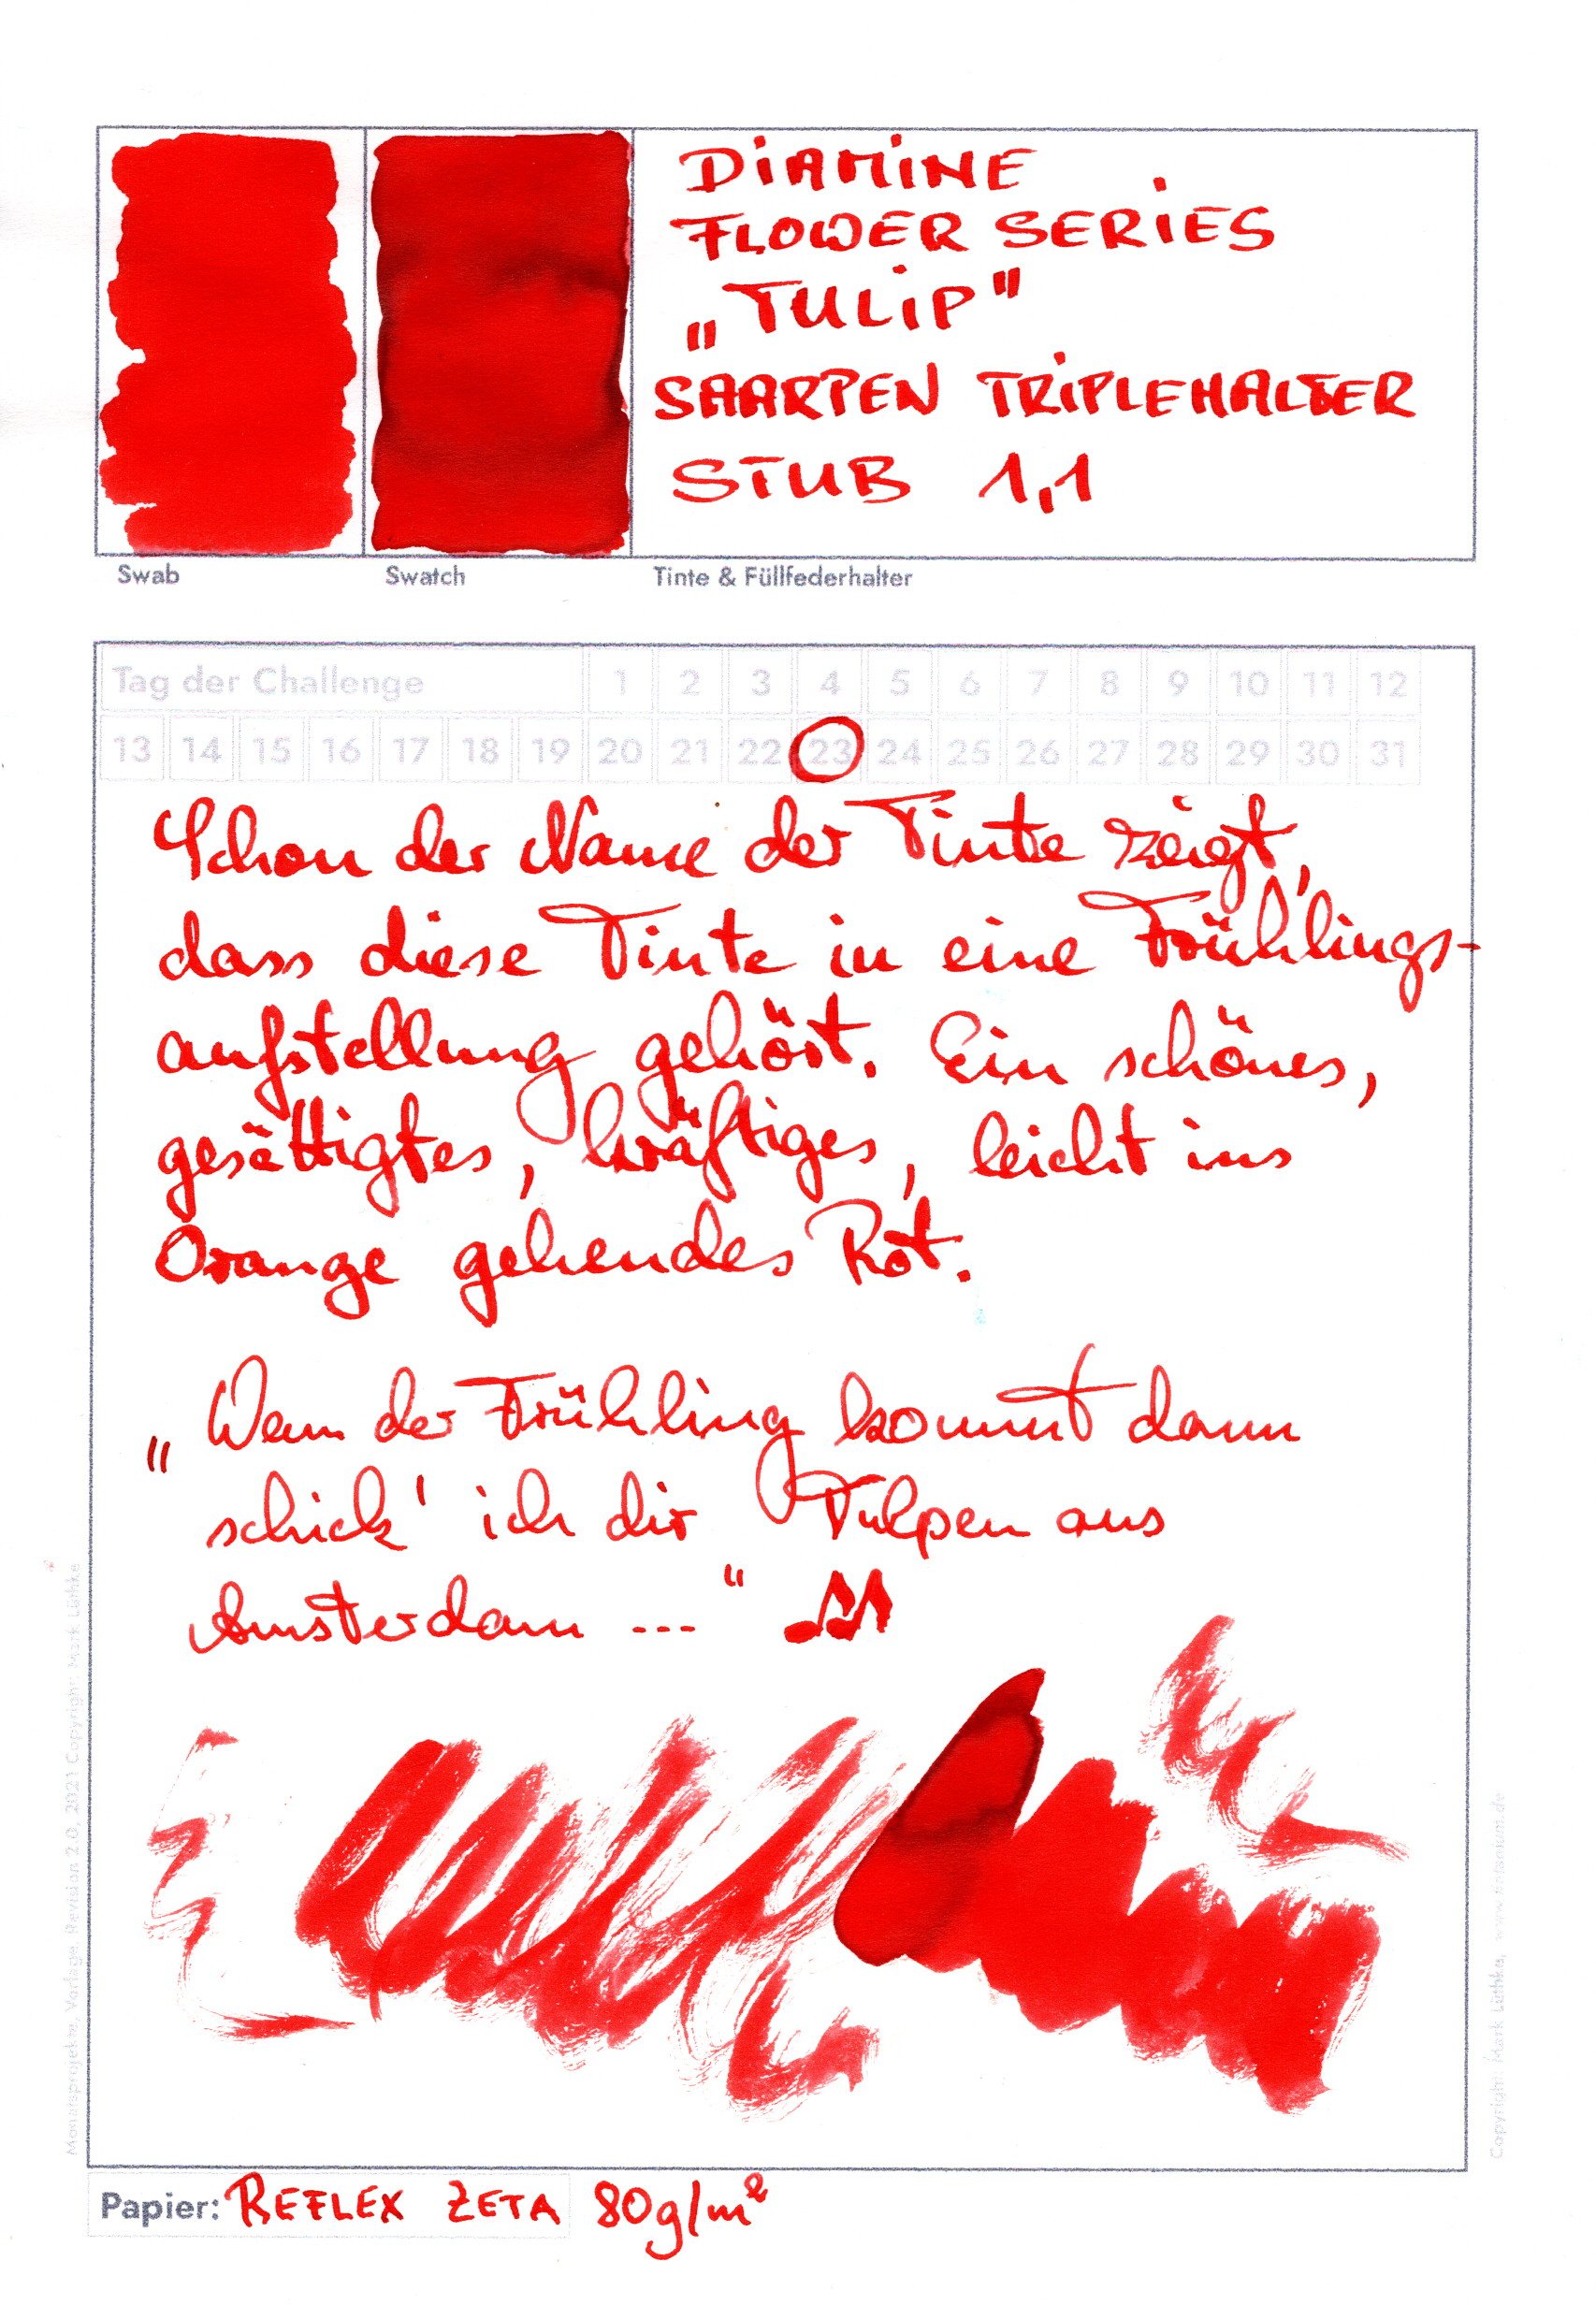 DIAMINE
FLOWER SERIES
„TULIP"
SAARPEN TRIPLEHALTER
STUB 1,1
Swab Swatch Tinte & Füllfederhalter
Tag der Challenge 1 2 3 4 5 6 7 8 9 10 11 12
13 14 15 16 17 18 19 20 21 22 23 24 25 26 27 28 29 30 31
Schon der Name der Tinte zeigt,
dass diese Tinte in eine Frühlings-
aufstellung gehört. Ein schönes,
gesättigtes, kräftiges, leicht ins
Orange gehendes Rot.
„Wenn der Frühling kommt dann
schick' ich dir Tulpen aus
Amsterdam ..." ♫
Papier: REFLEX ZETA 80g/m²
Monatsprojekte, Vorlage, Revision 2.0, 2021 Copyright: Mark Lüthke
Copyright: Mark Lüthke,